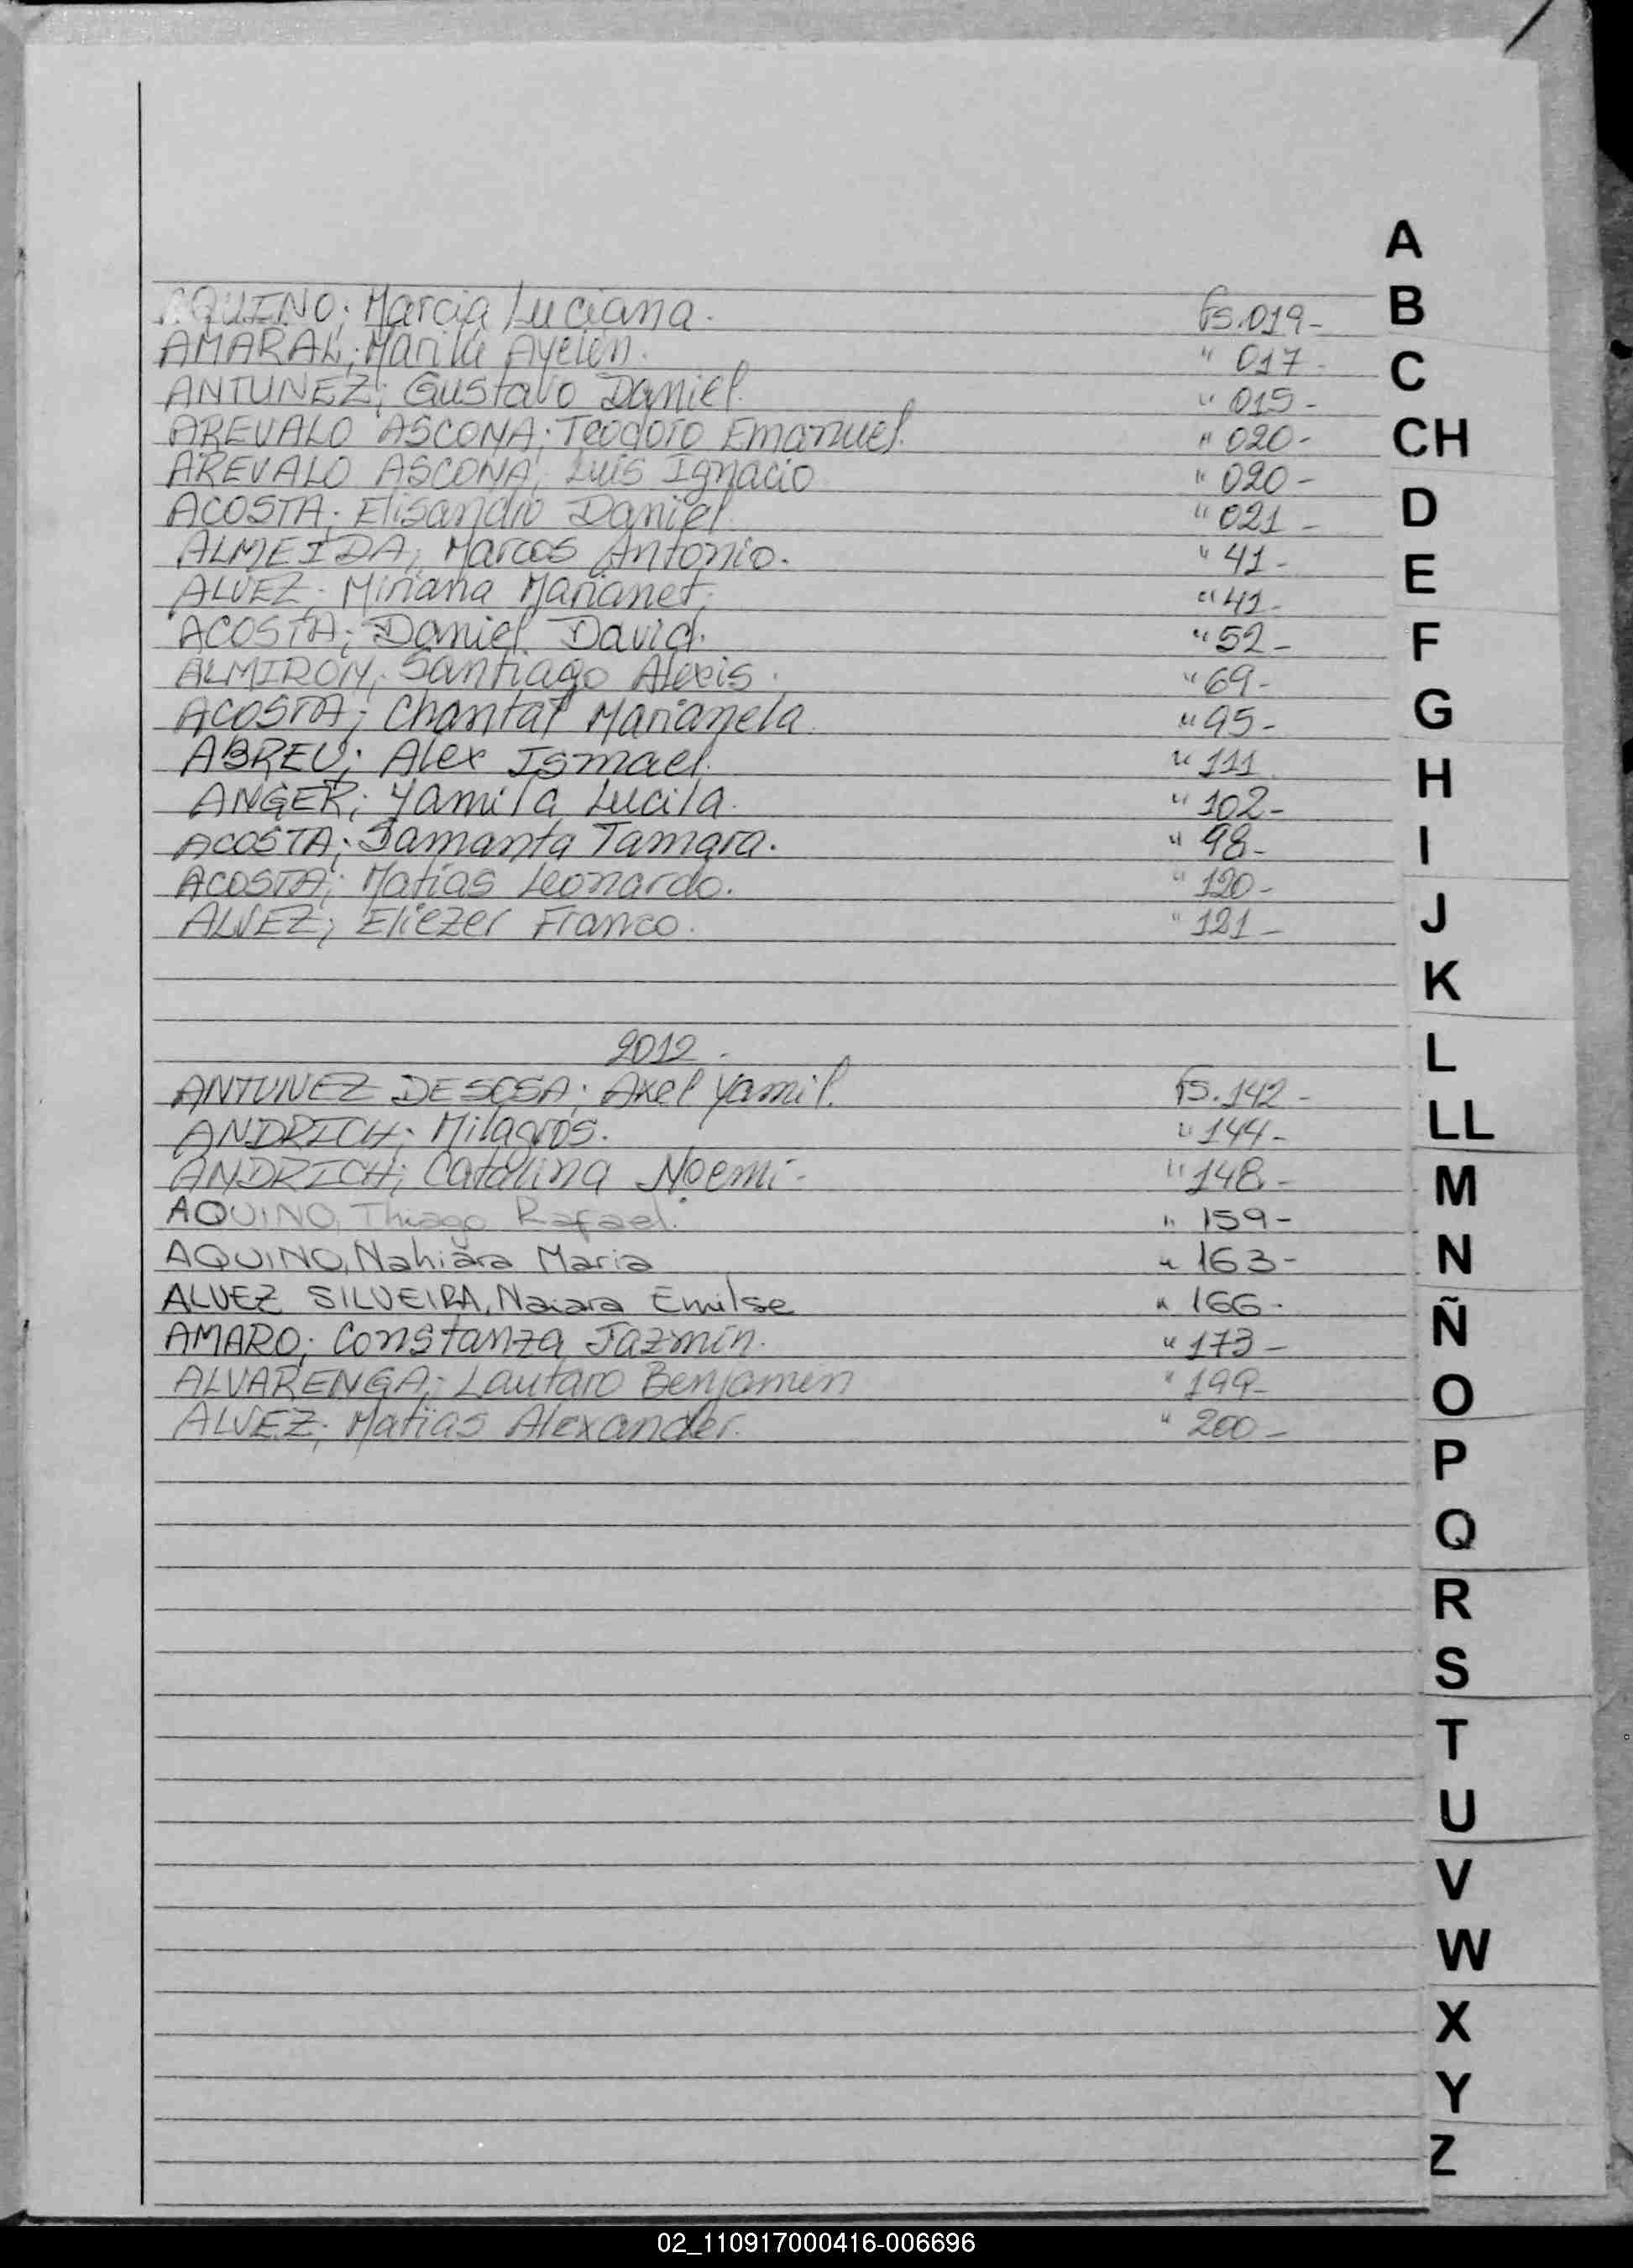 A
B
C
CH
D
E
F
G
H
I
J
K
L
LL
M
N
Ñ
O
P
Q
R
S
T
U
V
W
X
Y
Z
AQUINO; Marcia Luciana. Fs.019-
AMARAL; Marilú Ayelén. " 017-
ANTUNEZ; Gustavo Daniel. " 015-
AREVALO ASCONA; Teodoro Emanuel. " 020-
AREVALO ASCONA; Luis Ignacio " 020-
ACOSTA; Elisandro Daniel. " 021-
ALMEIDA; Marcos Antonio. " 41-
ALVEZ; Miriana Marianet. " 42-
ACOSTA; Daniel David. " 52-
ALMIRON; Santiago Alexis. " 69-
ACOSTA; Chantal Marianela. " 95-
ABREU; Alex Ismael. " 111
ANGER; Yamila Lucila. " 102-
ACOSTA; Samanta Tamara. " 98-
ACOSTA; Matías Leonardo. " 120-
ALVEZ; Eliezer Franco. " 121-
2012.
ANTUNEZ DE SOSA; Axel Yamil. Fs.142-
ANDRICH; Milagros. " 144-
ANDRICH; Catalina Noemi- " 148-
AQUINO, Thiago Rafael. " 159-
AQUINO, Nahiara Maria " 163-
ALVEZ SILVEIRA, Naiara Emilse " 166-
AMARO; Constanza Jazmín. " 173-
ALVARENGA; Lautaro Benjamen " 199-
ALVEZ; Matías Alexander. " 200-
02_110917000416-006696